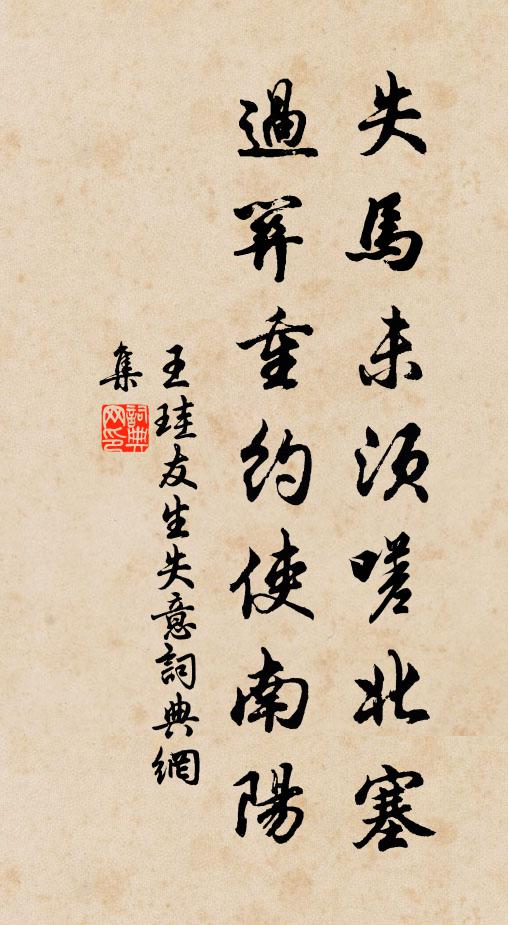 失馬未須嗟北塞
過羿重約使南陽
王珪友生失意詞典網
集
詞典
网印